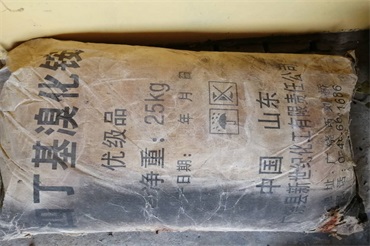 四丁基溴化铵
优级品
净重：25kg
日期： 年 月 日
中国 山东
县新世纪化工有限责任公司